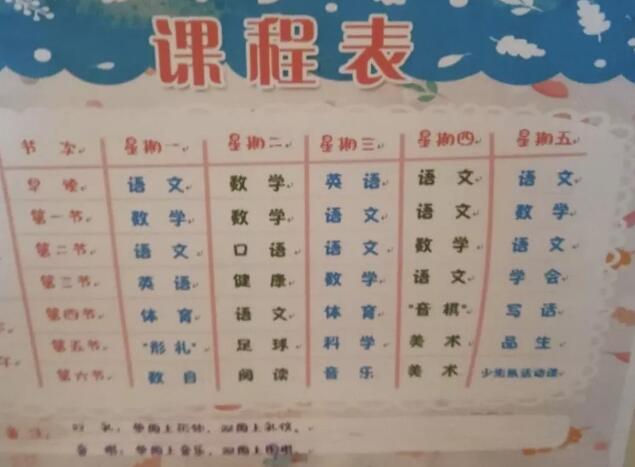 课程表
节次 星期一 星期二 星期三 星期四 星期五
早读 语文 数学 英语 语文 语文
第一节 数学 数学 语文 语文 数学
第二节 语文 口语 语文 数学 语文
第三节 英语 健康 数学 语文 学会
第四节 体育 语文 体育 "音棋" 写话
第五节 "形礼" 足球 科学 美术 品生
第六节 数自 阅读 音乐 美术 少先队活动课
礼：单周上形体，双周上礼仪。
单周上音乐，双周上围棋。